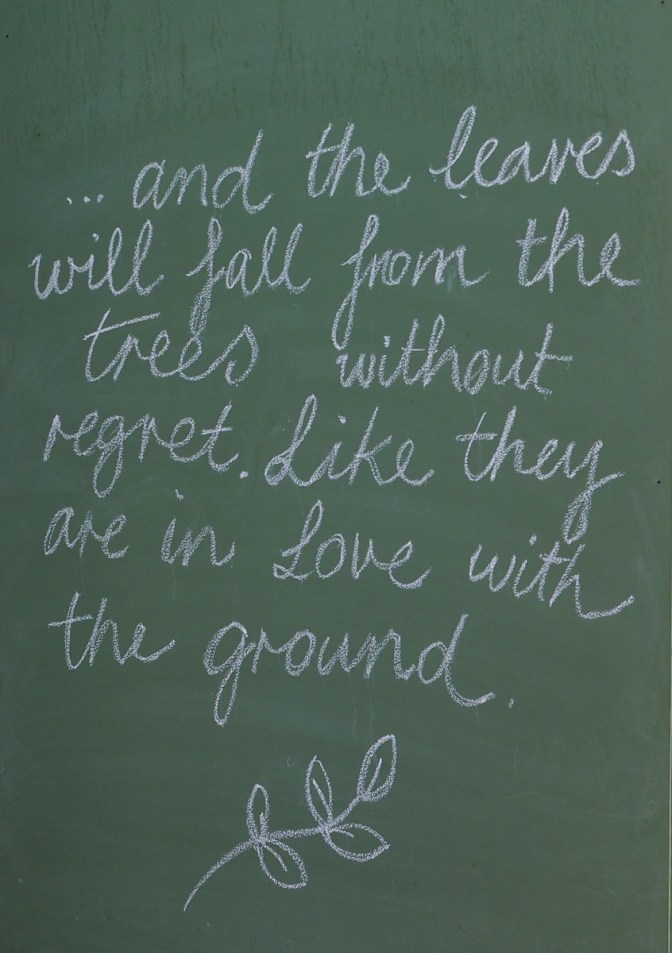 ... and the leaves
will fall from the
trees without
regret. Like they
are in Love with
the ground.